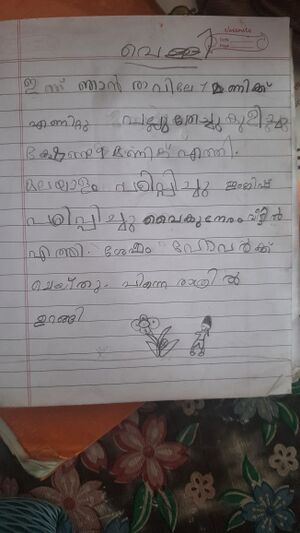 വെള്ളി
Classmate
Date
Page
ഇന്ന് ഞാൻ രവിലേ 7 മണിക്ക്
എണിറ്റു പല്ലു തേച്ചു കുളിച്ചു
മണിക് എത്തി.
മലയാളം പഠിപ്പിച്ചു ഇംഗ്ലിഷ്
പഠിപ്പിച്ചു വൈകുന്നേരം വീട്ടിൽ
എത്തി. ശേഷം ഹോംവർക്ക്
ചെയ്തു. പിന്നെ രാത്രിൽ
ഉറങ്ങി